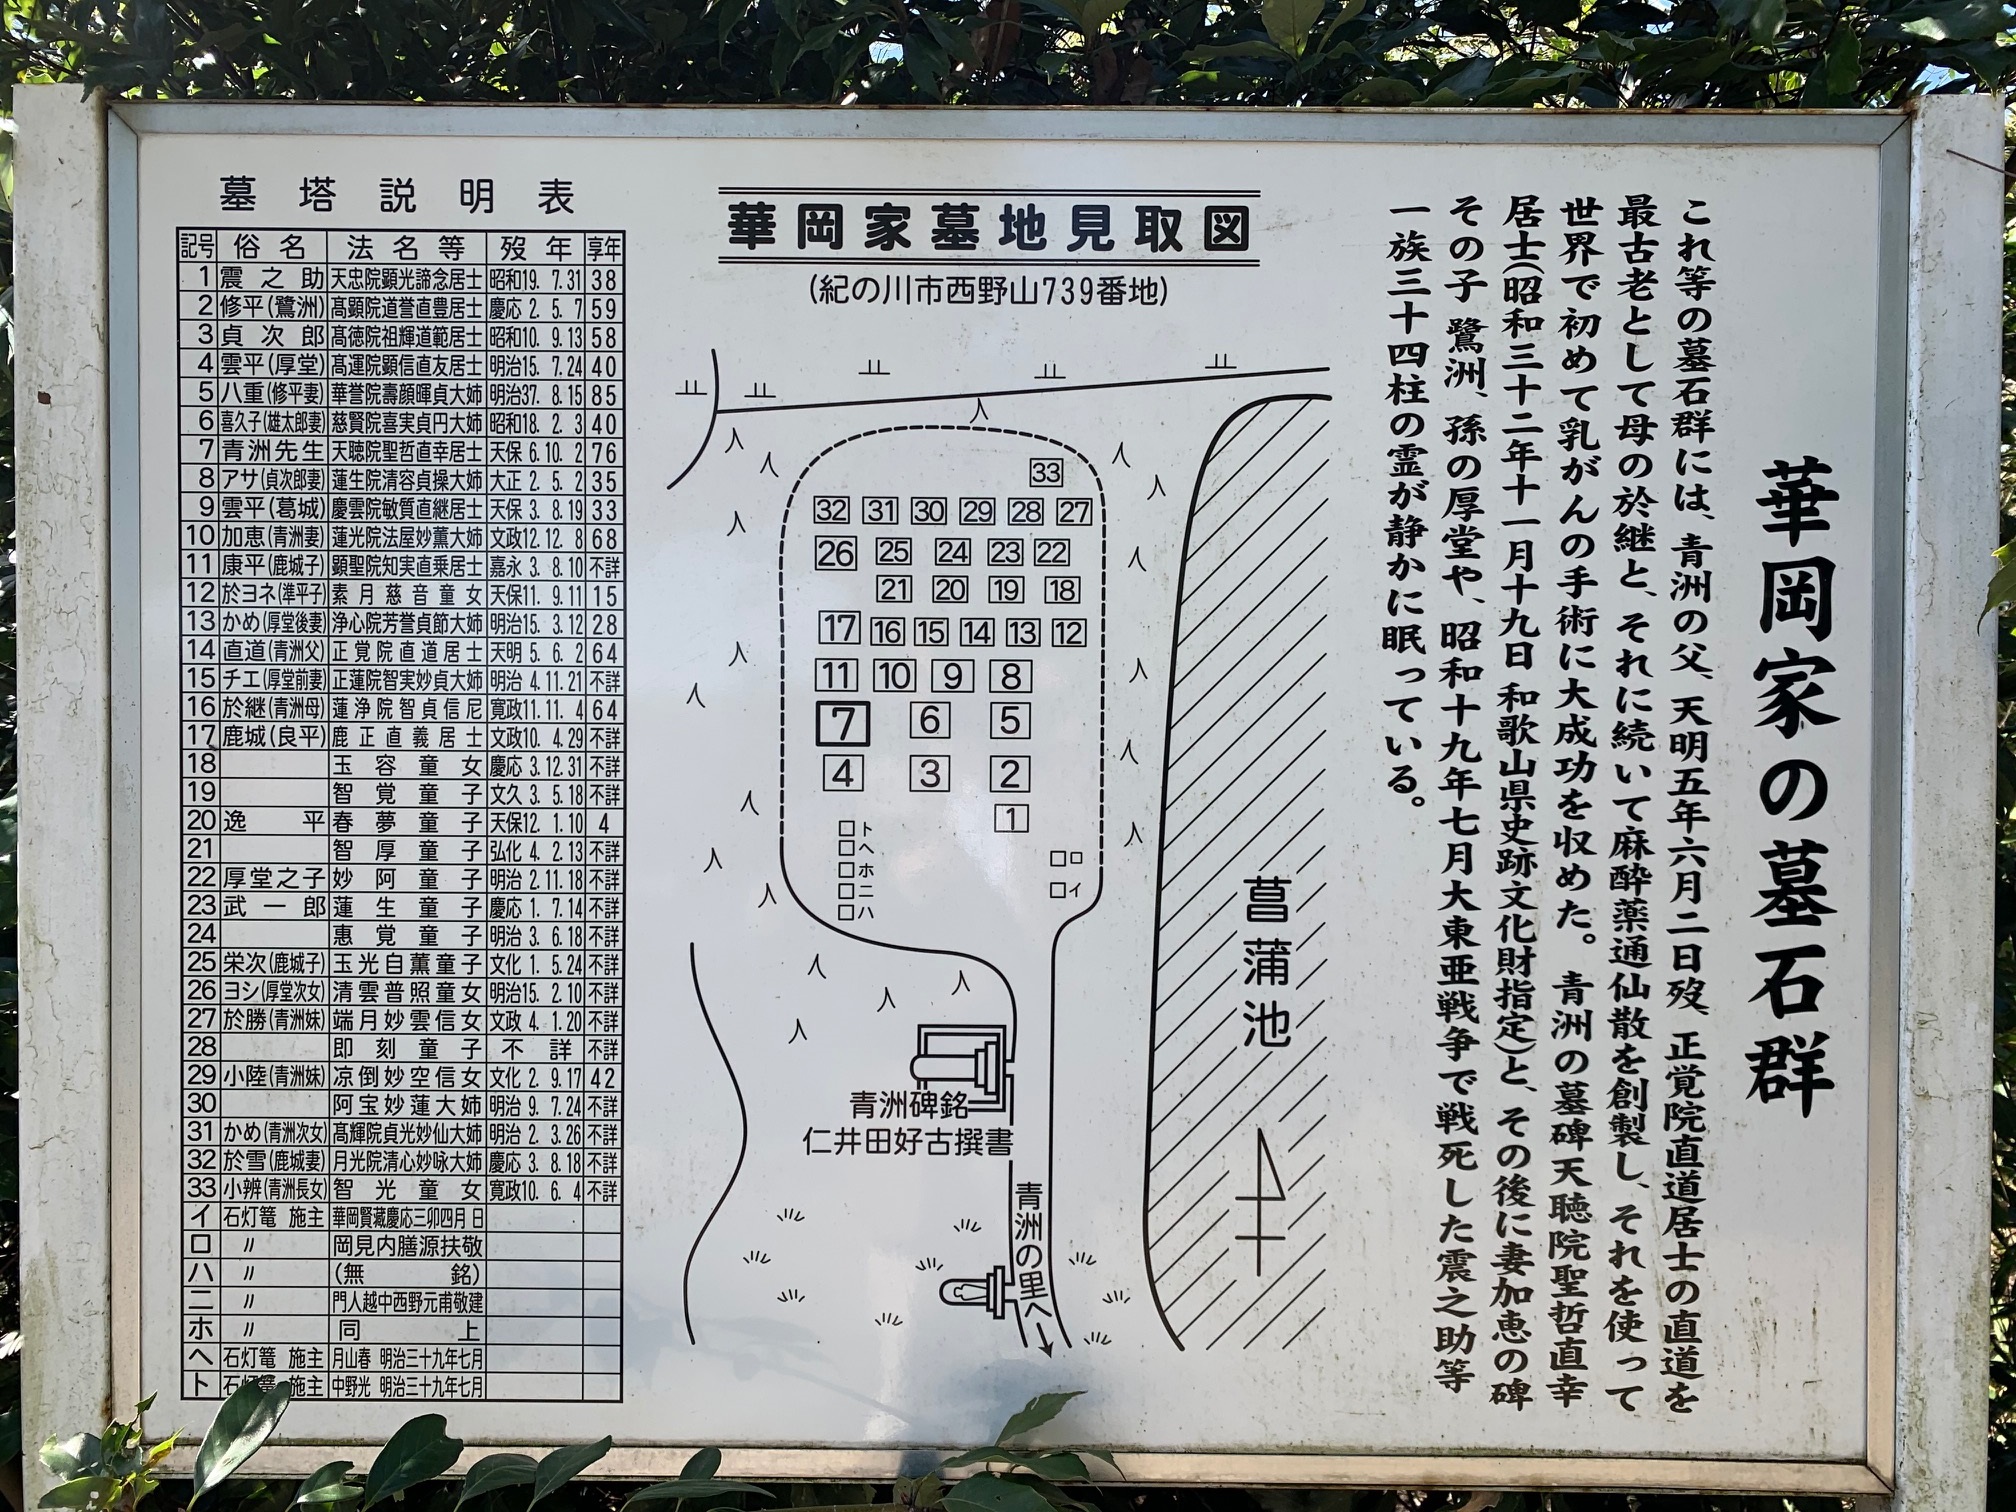 華岡家の墓石群
これ等の墓石群には、青洲の父、天明五年六月二日歿、正覚院直道居士の直道を
最古老として母の於継と、それに続いて麻酔薬通仙散を創製し、それを使って
世界で初めて乳がんの手術に大成功を収めた。青洲の墓碑天聴院聖哲直幸
居士(昭和三十二年十一月十九日和歌山県史跡文化財指定)と、その後に妻加恵の碑
その子鷺洲、孫の厚堂や、昭和十九年七月大東亜戦争で戦死した震之助等
一族三十四柱の霊が静かに眠っている。
華岡家墓地見取図
(紀の川市西野山739番地)
33
32 31 30 29 28 27
26 25 24 23 22
21 20 19 18
17 16 15 14 13 12
11 10 9 8
7 6 5
4 3 2
1
ト
ヘ
ホ
ニ
ハ
ロ
イ
菖蒲池
青洲碑銘
仁井田好古撰書
青洲の里へ
墓塔説明表
記号 俗名 法名等 歿年 享年
1 震之助 天忠院顕光諦念居士 昭和19. 7.31 38
2 修平(鷺洲) 髙顕院道誉直豊居士 慶応 2. 5. 7 59
3 貞次郎 髙徳院祖輝道範居士 昭和10. 9.13 58
4 雲平(厚堂) 髙運院顕信直友居士 明治15. 7.24 40
5 八重(修平妻) 華誉院壽顔暉貞大姉 明治37. 8.15 85
6 喜久子(雄太郎妻) 慈賢院喜実貞円大姉 昭和18. 2. 3 40
7 青洲先生 天聴院聖哲直幸居士 天保 6.10. 2 76
8 アサ(貞次郎妻) 蓮生院清容貞操大姉 大正 2. 5. 2 35
9 雲平(葛城) 慶雲院敏質直継居士 天保 3. 8.19 33
10 加恵(青洲妻) 蓮光院法屋妙薫大姉 文政12.12. 8 68
11 康平(鹿城子) 顕聖院知実直乗居士 嘉永 3. 8.10 不詳
12 於ヨネ(準平子) 素月慈音童女 天保11. 9.11 15
13 かめ(厚堂後妻) 浄心院芳誉貞節大姉 明治15. 3.12 28
14 直道(青洲父) 正覚院直道居士 天明 5. 6. 2 64
15 チエ(厚堂前妻) 正蓮院智実妙貞大姉 明治 4.11.21 不詳
16 於継(青洲母) 蓮浄院智貞信尼 寛政11.11. 4 64
17 鹿城(良平) 鹿正直義居士 文政10. 4.29 不詳
18 玉容童女 慶応 3.12.31 不詳
19 智覚童子 文久 3. 5.18 不詳
20 逸平 春夢童子 天保12. 1.10 4
21 智厚童子 弘化 4. 2.13 不詳
22 厚堂之子 妙阿童子 明治 2.11.18 不詳
23 武一郎 蓮生童子 慶応 1. 7.14 不詳
24 惠覚童子 明治 3. 6.18 不詳
25 栄次(鹿城子) 玉光自薫童子 文化 1. 5.24 不詳
26 ヨシ(厚堂次女) 清雲普照童女 明治15. 2.10 不詳
27 於勝(青洲妹) 端月妙雲信女 文政 4. 1.20 不詳
28 即刻童子 不詳 不詳
29 小陸(青洲妹) 凉倒妙空信女 文化 2. 9.17 42
30 阿宝妙蓮大姉 明治 9. 7.24 不詳
31 かめ(青洲次女) 髙輝院貞光妙仙大姉 明治 2. 3.26 不詳
32 於雪(鹿城妻) 月光院清心妙咏大姉 慶応 3. 8.18 不詳
33 小辨(青洲長女) 智光童女 寛政10. 6. 4 不詳
イ 石灯篭 施主 華岡賢蔵慶応三卯四月 日
ロ 〃 岡見内膳源扶敬
ハ 〃 (無銘)
ニ 〃 門人越中西野元甫敬建
ホ 〃 同上
ヘ 石灯篭 施主 月山春 明治三十九年七月
ト 石灯篭 施主 中野光 明治三十九年七月